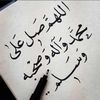 اللهم صل على
محمد وآله وصحبه
وسلم